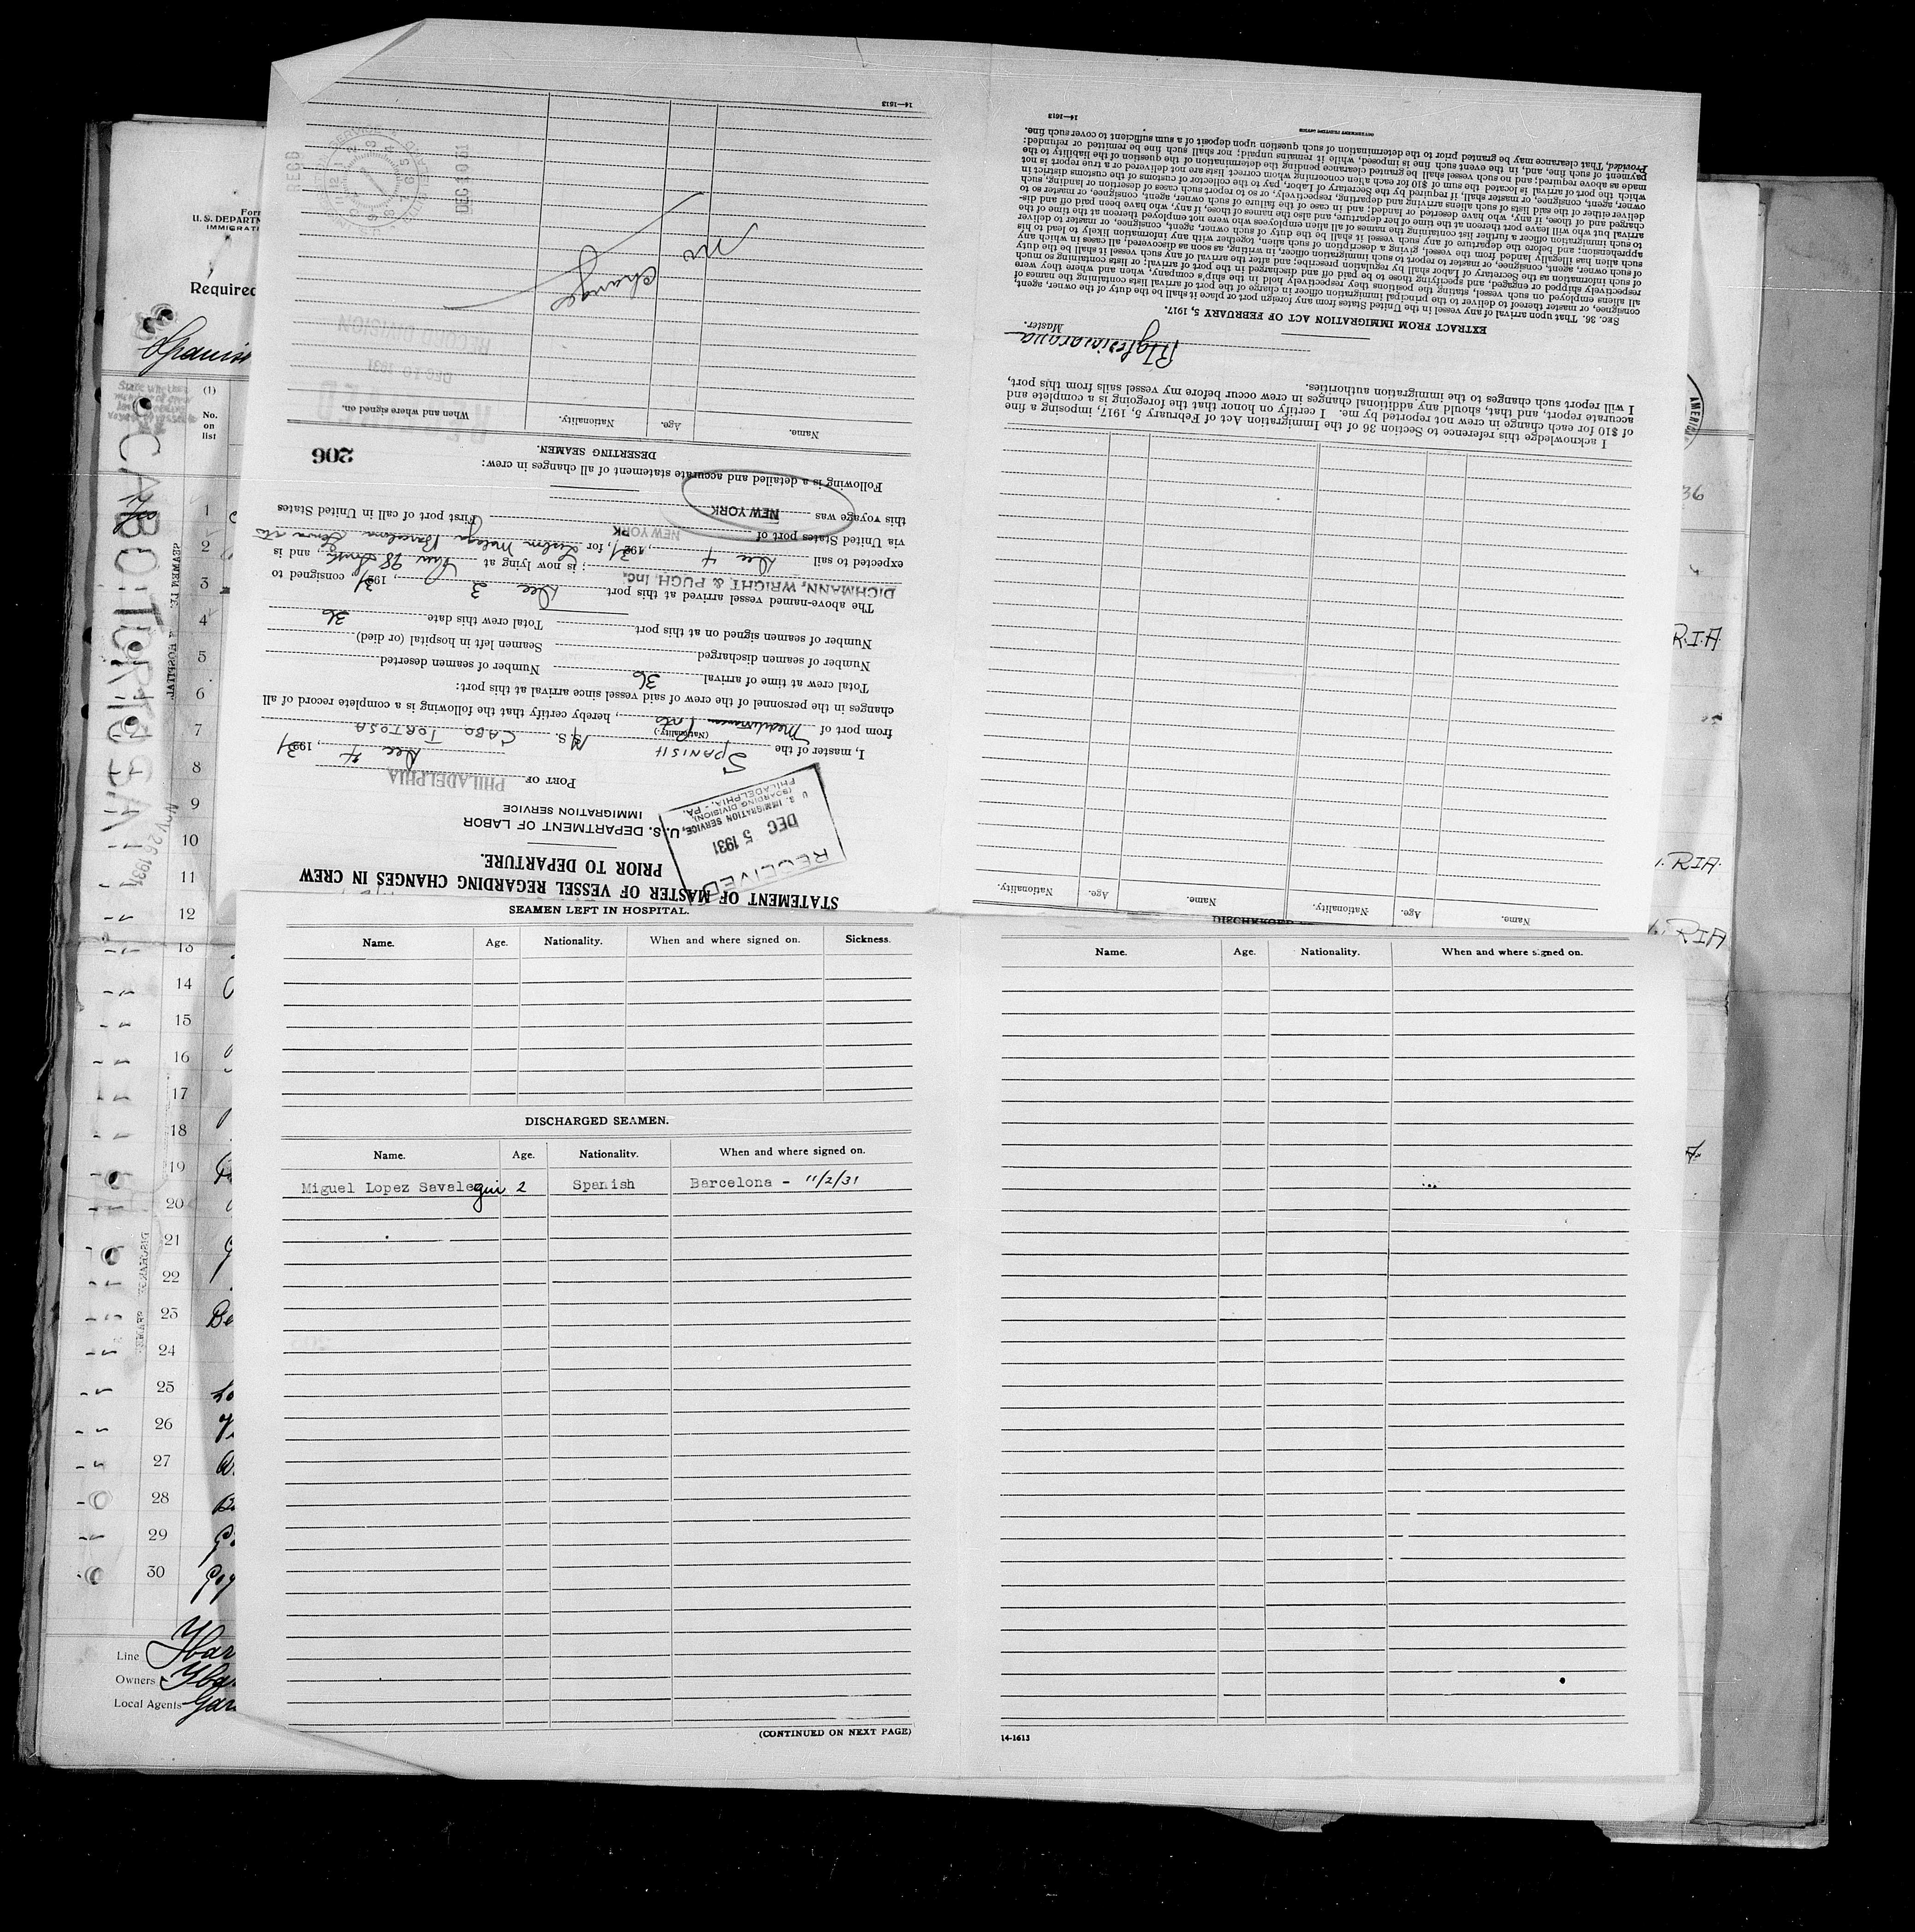 STATEMENT OF MASTER OF VESSEL REGARDING CHANGES IN CREW
PRIOR TO DEPARTURE.
U. S. DEPARTMENT OF LABOR
IMMIGRATION SERVICE
RECEIVED
DEC 5 1931
U. S. IMMIGRATION SERVICE,
(BOARDING DIVISION),
PHILADELPHIA, - PA.
PORT OF PHILADELPHIA
Dec 4, 1931
I, master of the SPANISH M/S. CABO TORTOSA
(Nationality.)
from port of Mediterranean Ports, hereby certify that the following is a complete record of all
changes in the personnel of the crew of said vessel since arrival at this port:
Total crew at time of arrival 36 Number of seamen deserted
Number of seamen discharged Seamen left in hospital (or died)
Number of seamen signed on at this port Total crew this date 36
The above-named vessel arrived at this port Dec 3, 1931, consigned to
DICHMANN, WRIGHT & PUGH, Inc.; is now lying at Pier 98 South, and is
expected to sail Dec 4, 1931, for Malaga Barcelona Genoa
via United States port of NEW YORK
this voyage was NEW YORK First port of call in United States
Following is a detailed and accurate statement of all changes in crew:
206
DESERTING SEAMEN.
Name. Age. Nationality. When and where signed on.
DEC 10 1931
RECORD DIVISION
No change
DEC 10 31
RECD
14—1613
DISCHARGED
Name. Age. Nationality. Name. Age. Nationality.
I acknowledge this reference to Section 36 of the Immigration Act of February 5, 1917, imposing a fine
of $10 for each change in crew not reported by me. I certify on honor that the foregoing is a complete and
accurate report, and that, should any additional changes in crew occur before my vessel sails from this port,
I will report such changes to the immigration authorities.
Master.
EXTRACT FROM IMMIGRATION ACT OF FEBRUARY 5, 1917.
SEC. 36. That upon arrival of any vessel in the United States from any foreign port or place it shall be the duty of the owner, agent,
consignee, or master thereof to deliver to the principal immigration officer in charge of the port of arrival lists containing the names of
all aliens employed on such vessel, stating the positions they respectively hold in the ship's company, when and where they were
respectively shipped or engaged, and specifying those to be paid off and discharged in the port of arrival; or lists containing so much
of such information as the Secretary of Labor shall by regulation prescribe; and after the arrival of any such vessel it shall be the duty
of such owner, agent, consignee, or master to report to such immigration officer, in writing, as soon as discovered, all cases in which any
such alien has illegally landed from the vessel, giving a description of such alien, together with any information likely to lead to his
apprehension; and before the departure of any such vessel it shall be the duty of such owner, agent, consignee, or master to deliver
to such immigration officer a further list containing the names of all alien employees who were not employed thereon at the time of the
arrival but who will leave port thereon at the time of her departure, and also the names of those, if any, who have been paid off and dis-
charged and of those, if any, who have deserted or landed; and in case of the failure of such owner, agent, consignee, or master to
deliver either of the said lists of such aliens arriving and departing, respectively, or so to report such cases of desertion or landing, such
owner, agent, consignee, or master, shall, if required by the Secretary of Labor, pay to the collector of customs of the customs district in
which the port of arrival is located the sum of $10 for each alien concerning whom correct lists are not delivered or a true report is not
made as above required; and no such vessel shall be granted clearance pending the determination of the question of the liability to the
payment of such fine, and, in the event such fine is imposed, while it remains unpaid; nor shall such fine be remitted or refunded:
Provided, That clearance may be granted prior to the determination of such question upon deposit of a sum sufficient to cover such fine.
GOVERNMENT PRINTING OFFICE
14—1613
SEAMEN LEFT IN HOSPITAL.
Name. Age. Nationality. When and where signed on. Sickness.
DISCHARGED SEAMEN.
Name. Age. Nationality. When and where signed on.
Miguel Lopez Savalegui 2 Spanish Barcelona - 11/2/31
(CONTINUED ON NEXT PAGE)
Name. Age. Nationality. When and where signed on.
14-1613
Form
U. S. DEPARTM
IMMIGRATI
Required
Spanish
(1)
No.
on
list
CABO: TORTOSA
NOV 26 1931
1
2
3
4
5
6
7
8
9
10
11
12
13
14
15
16
17
18
19
20
21
22
23
24
25
26
27
28
29
30
Line Ybar
Owners Ybar
Local Agents Gar
AMERICA
36
R.I.A.
RIA.
RIA